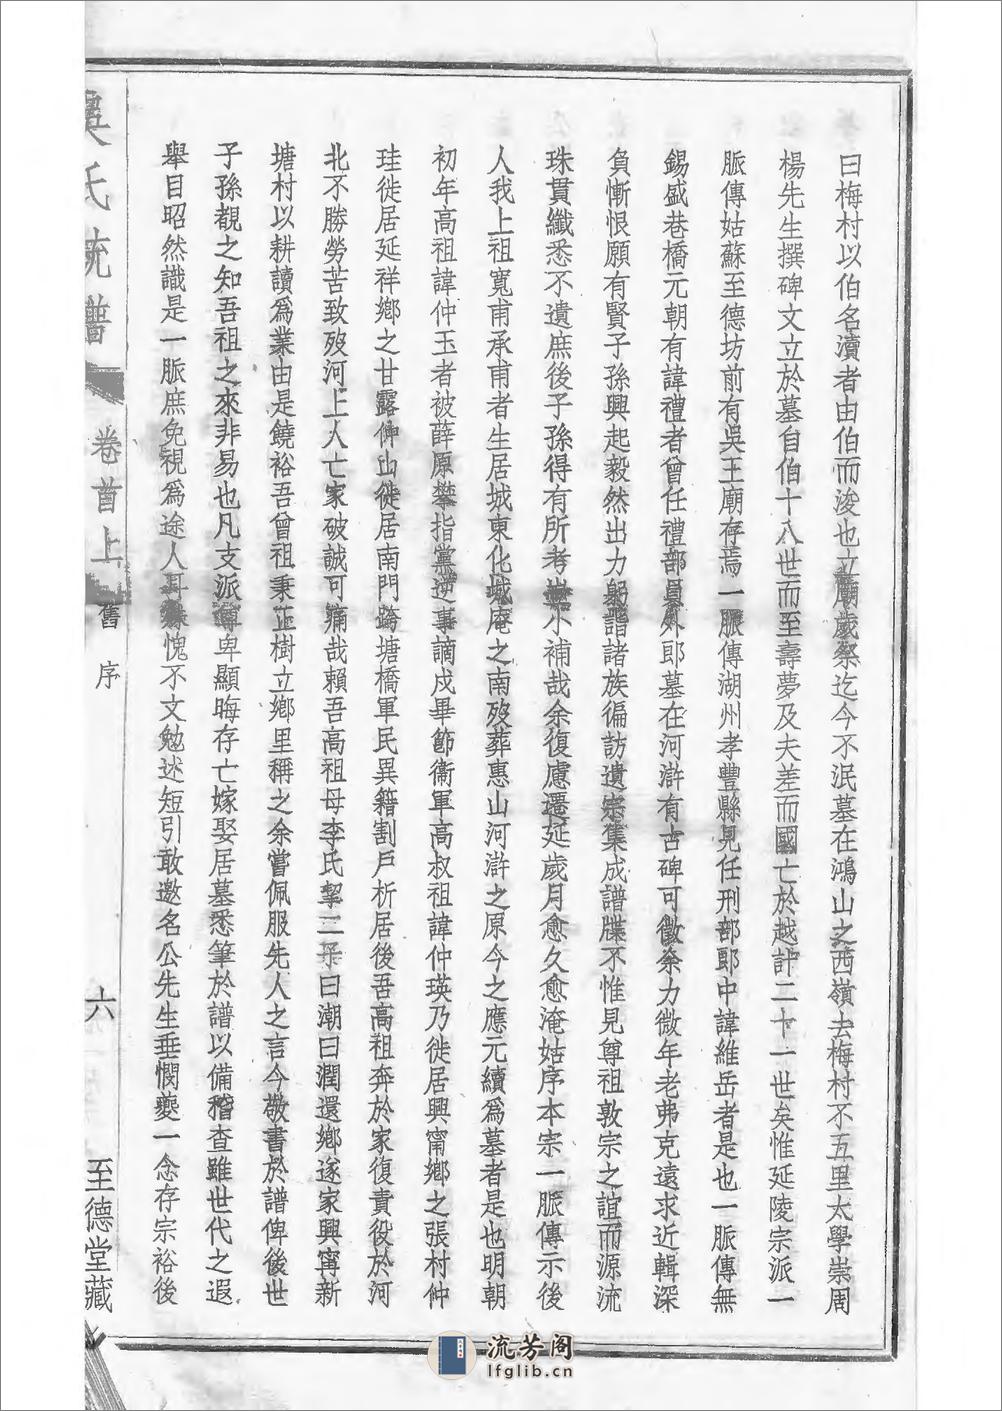 曰梅村以伯名瀆者由伯而浚也立廟歲祭迄今不泯墓在鴻山之西嶺去梅村不五里太學崇周
楊先生撰碑文立於墓自伯十八世而至壽夢及夫差而國亡於越計二十一世矣惟延陵宗派一
脈傳姑蘇至德坊前有吳王廟存焉一脈傳湖州孝豐縣見任刑部郎中諱維岳者是也一脈傳無
錫盛巷橋元朝有諱禮者曾任禮部員外郎墓在河滸有古碑可徵余力微年老弗克遠求近輯深
負慚恨願有賢子孫興起毅然出力躬詣諸族徧訪遺宗集成譜牒不惟見尊祖敦宗之誼而源流
珠貫纖悉不遺庶後子孫得有所考豈小補哉余復慮遷延歲月愈久愈淹姑序本宗一脈傳示後
人我上祖寬甫承甫者生居城東化城庵之南歿葬惠山河滸之原今之應元續爲墓者是也明朝
初年高祖諱仲玉者被薛原攀指黨逆事謫戍畢節衞軍高叔祖諱仲瑛乃徙居興甯鄉之張村仲
珪徙居延祥鄉之甘露仲山徙居南門跨塘橋軍民異籍割戶析居後吾高祖奔於家復責役於河
北不勝勞苦致歿河上人亡家破誠可痛哉賴吾高祖母李氏挈二子曰潮曰潤還鄉逐家興甯新
塘村以耕讀爲業由是饒裕吾曾祖秉正樹立鄉里稱之余嘗佩服先人之言今敬書於譜俾後世
子孫覩之知吾祖之來非易也凡支派尊卑顯晦存亡嫁娶居墓悉筆於譜以備稽查雖世代之遐
舉目昭然識是一脈庶免視爲途人耳余愧不文勉述短引敢邀名公先生垂憫夔一念存宗裕後
吳氏統譜
卷首上
舊序
六
至德堂藏
流芳阁
lfglib.cn